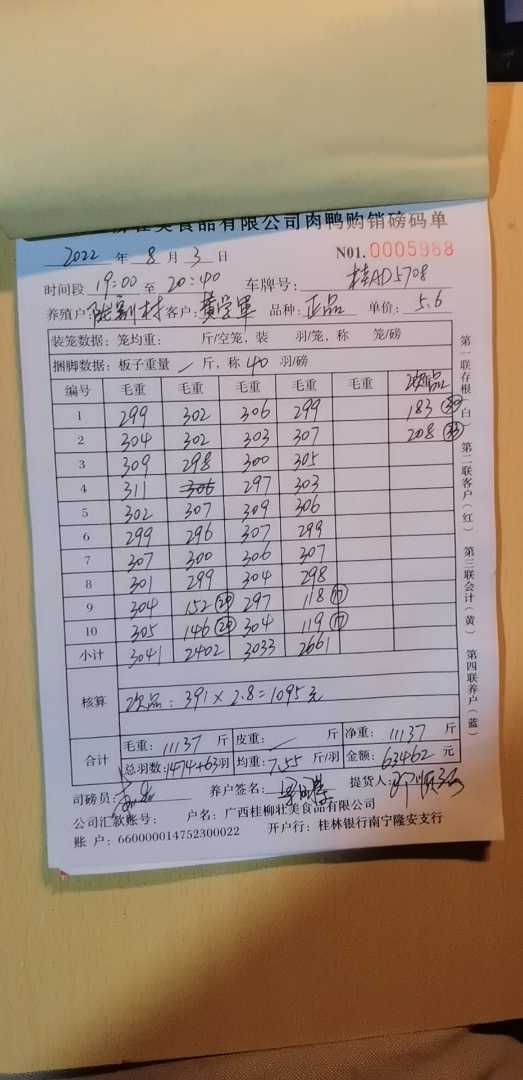 壮美食品有限公司肉鸭购销磅码单
2022 年 8 月 3 日 NO1.0005988
时间段 19:00 至 20:40 车牌号: 桂AD5708
养殖户: 村 客户: 黄学军 品种: 正品 单价: 5.6
装笼数据: 笼均重: 斤/空笼, 装 羽/笼, 称 笼/磅
捆脚数据: 板子重量 / 斤, 称 40 羽/磅
编号 毛重 毛重 毛重 毛重 毛重 次品
1 299 302 306 299 183 30
2 304 302 303 307 208 33
3 309 298 300 305
4 311 306 297 303
5 302 307 309 306
6 299 296 307 299
7 307 300 306 307
8 301 299 304 298
9 304 152 20 297 118 17
10 305 146 20 304 119 17
小计 3041 2402 3033 2661
核算 次品: 391 × 2.8 = 1095元
合计 毛重: 11137 斤 皮重: / 斤 净重: 11137 斤
总羽数: 1474+63羽 均重: 7.55 斤/羽 金额: 63462 元
司磅员: 养户签名: 提货人:
公司汇款账号: 户名: 广西桂柳壮美食品有限公司
账 户: 660000014752300022 开户行: 桂林银行南宁隆安支行
第一联存根(白) 第二联客户(红) 第三联会计(黄) 第四联养户(蓝)